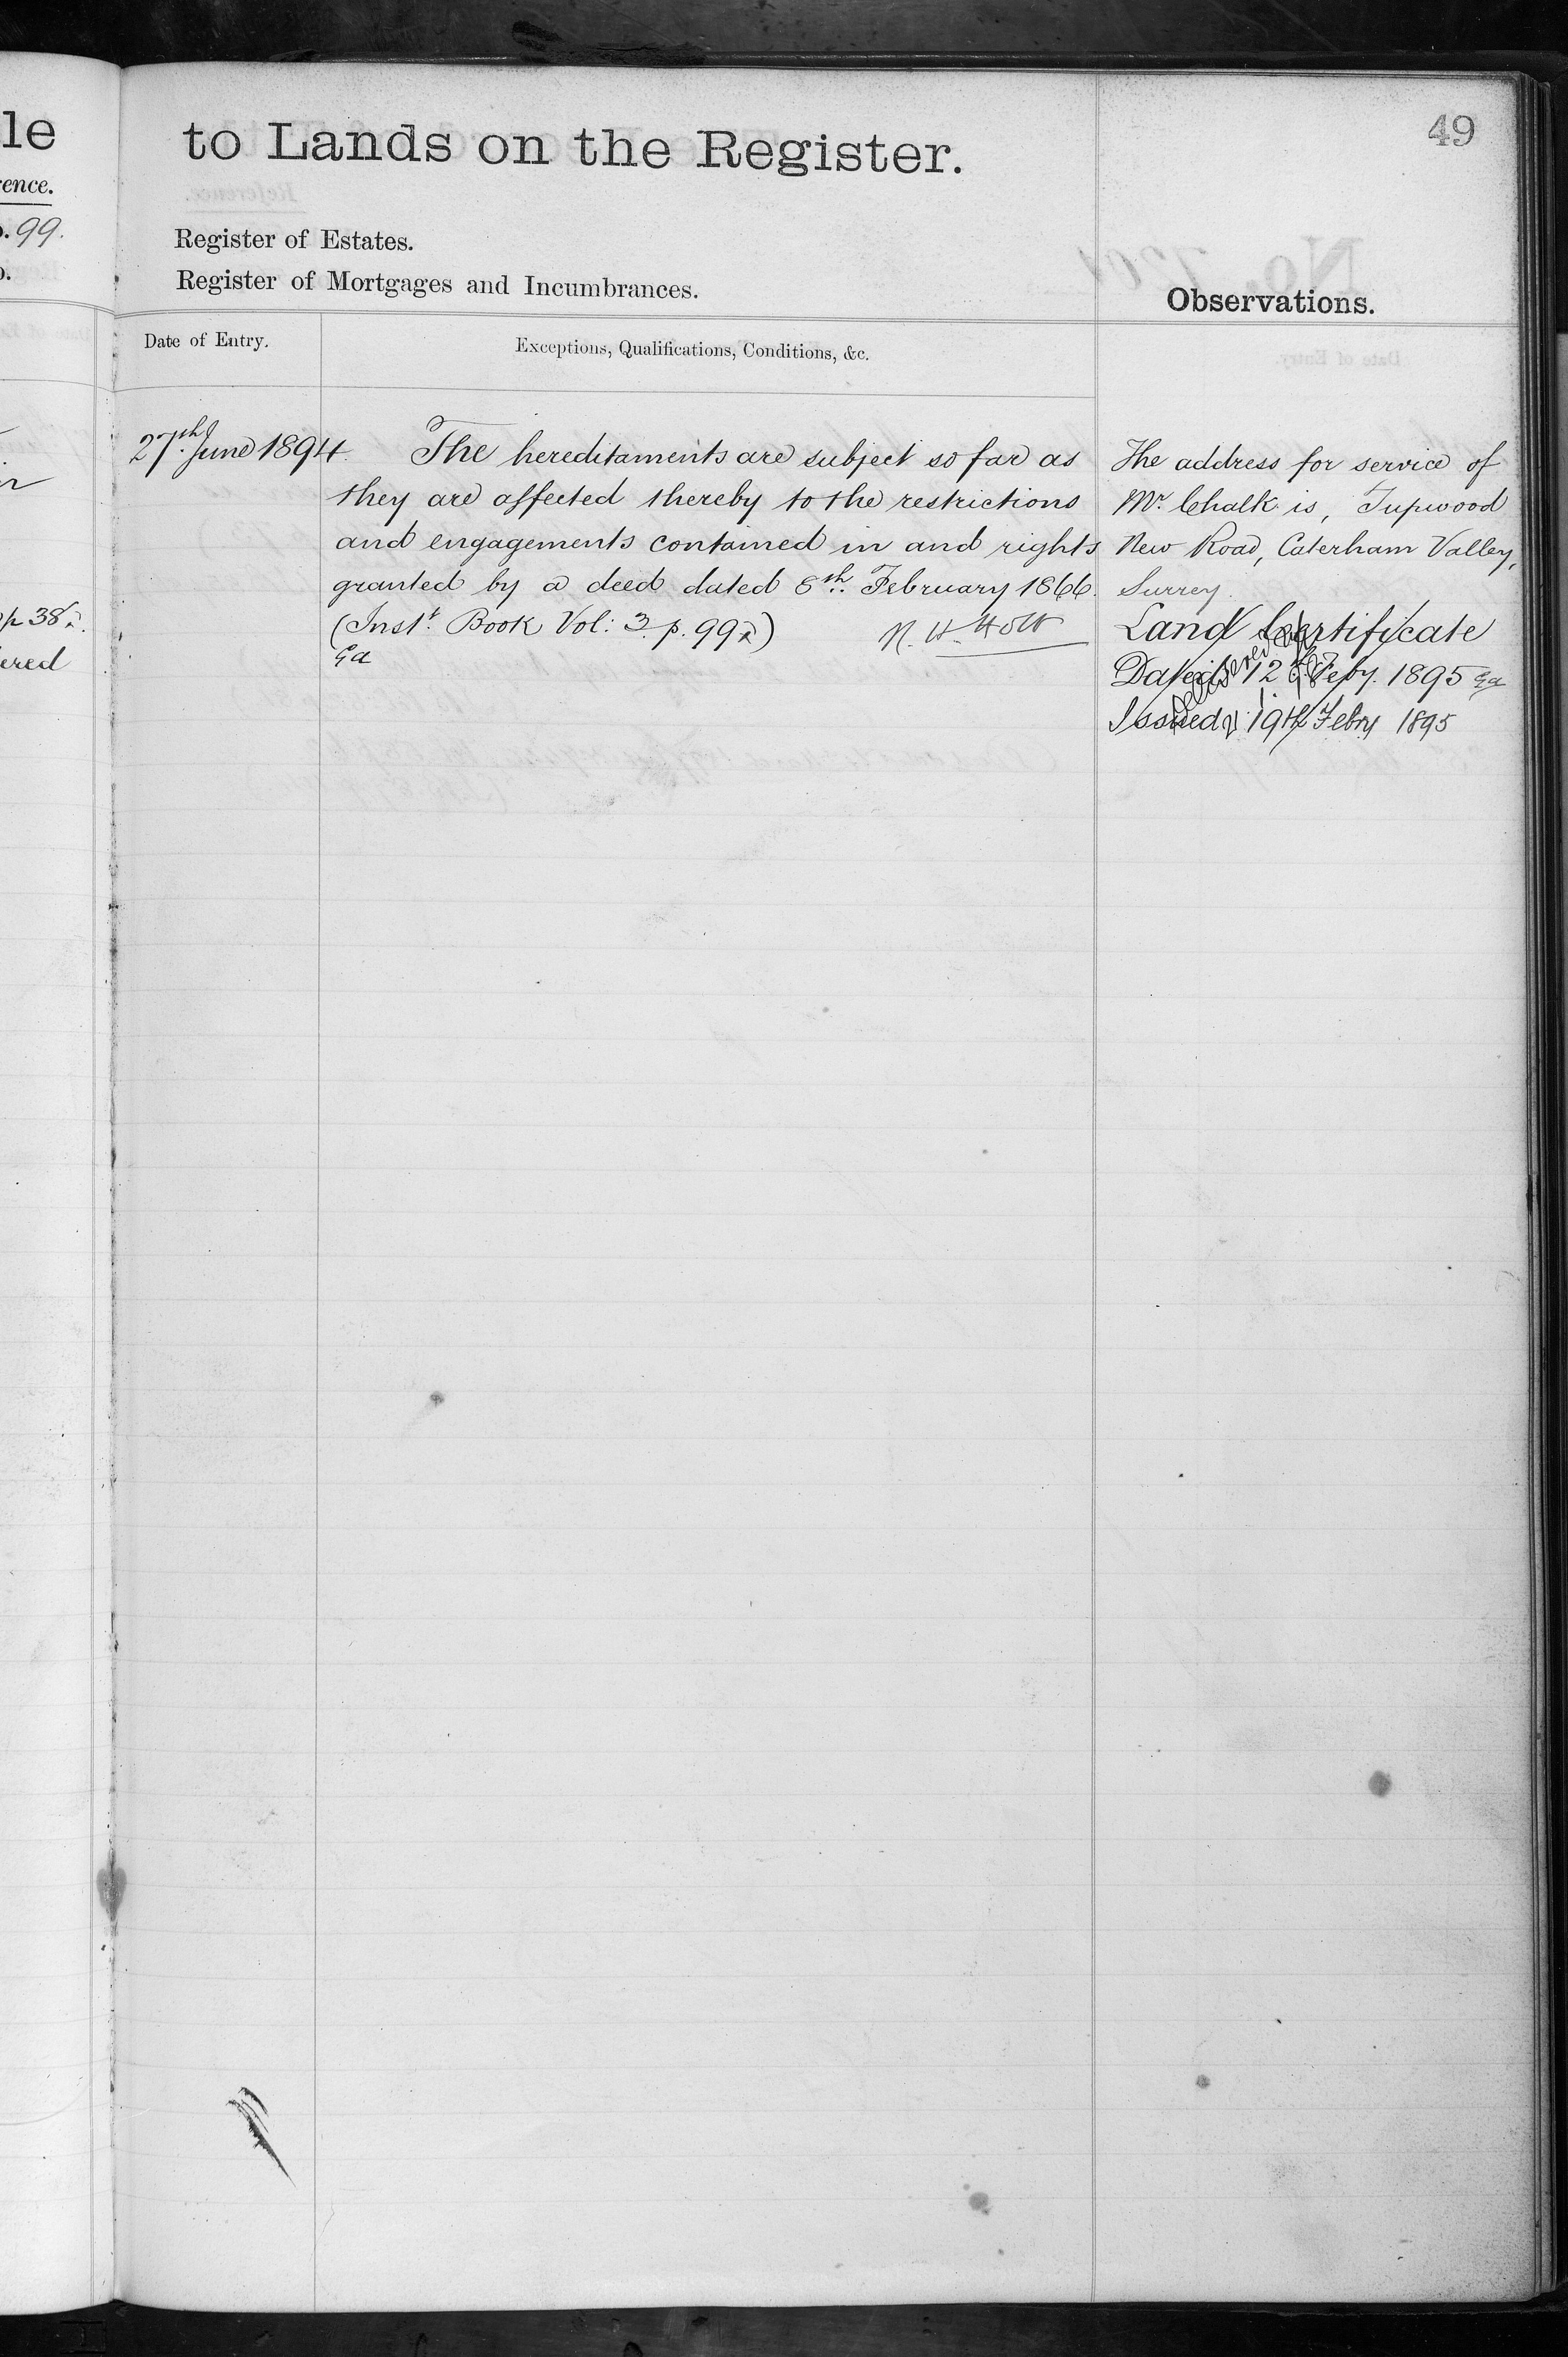 le
ence.
. 99.
p 38
ered
49
to Lands on the Register.
Register of Estates.
Register of Mortgages and Incumbrances.
Observations.
Date of Entry.
Exceptions, Qualifications, Conditions, &c.
27th June 1894.
The hereditaments are subject so far as
they are affected thereby to the restrictions
and engagements contained in and rights
granted by a deed dated 8th February 1866.
(Inst. Book Vol: 3 p. 99) N. H. Holt
The address for service of
Mr. Chalk is, Tupwood
New Road, Caterham Valley,
Surrey.
Land Certificate
Dated 12 Feby. 1895
Issued 19th Febry 1895
Delivered up